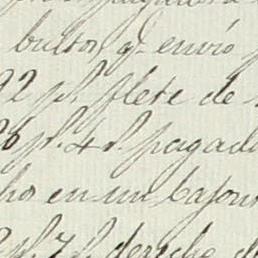 bultos q.e envió
92 p.s flete de
26 p.s 4 r.s pagad
ho en un cajon
p.s 7 r.s derecho de